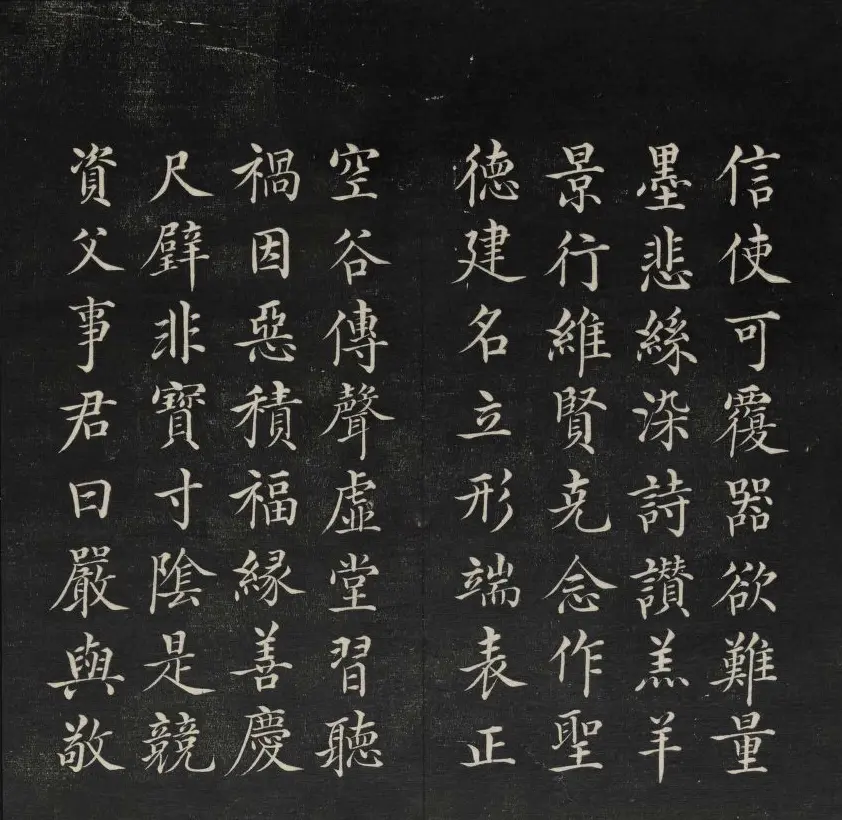 信使可覆器欲難量
墨悲絲染詩讚羔羊
景行維賢克念作聖
德建名立形端表正
空谷傳聲虛堂習聽
禍因惡積福緣善慶
尺璧非寶寸陰是競
資父事君曰嚴與敬